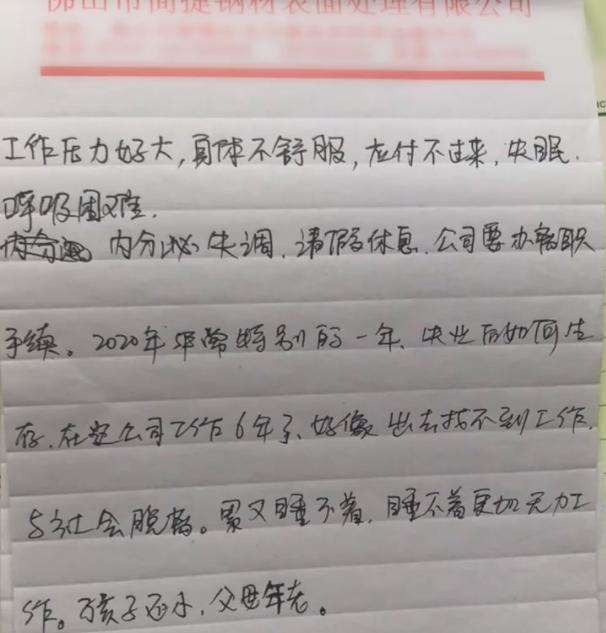 佛山市简捷钢材表面处理有限公司
工作压力好大，身体不舒服，应付不过来，失眠．
呼吸困难．
内分泌失调．请假休息．公司要办辞职
手续。2020年非常特别的一年、失业后如何生
存．在这公司工作6年了、好像出去找不到工作．
与社会脱节。累又睡不着．睡不着更加无力工
作。孩子还小．父母年老。